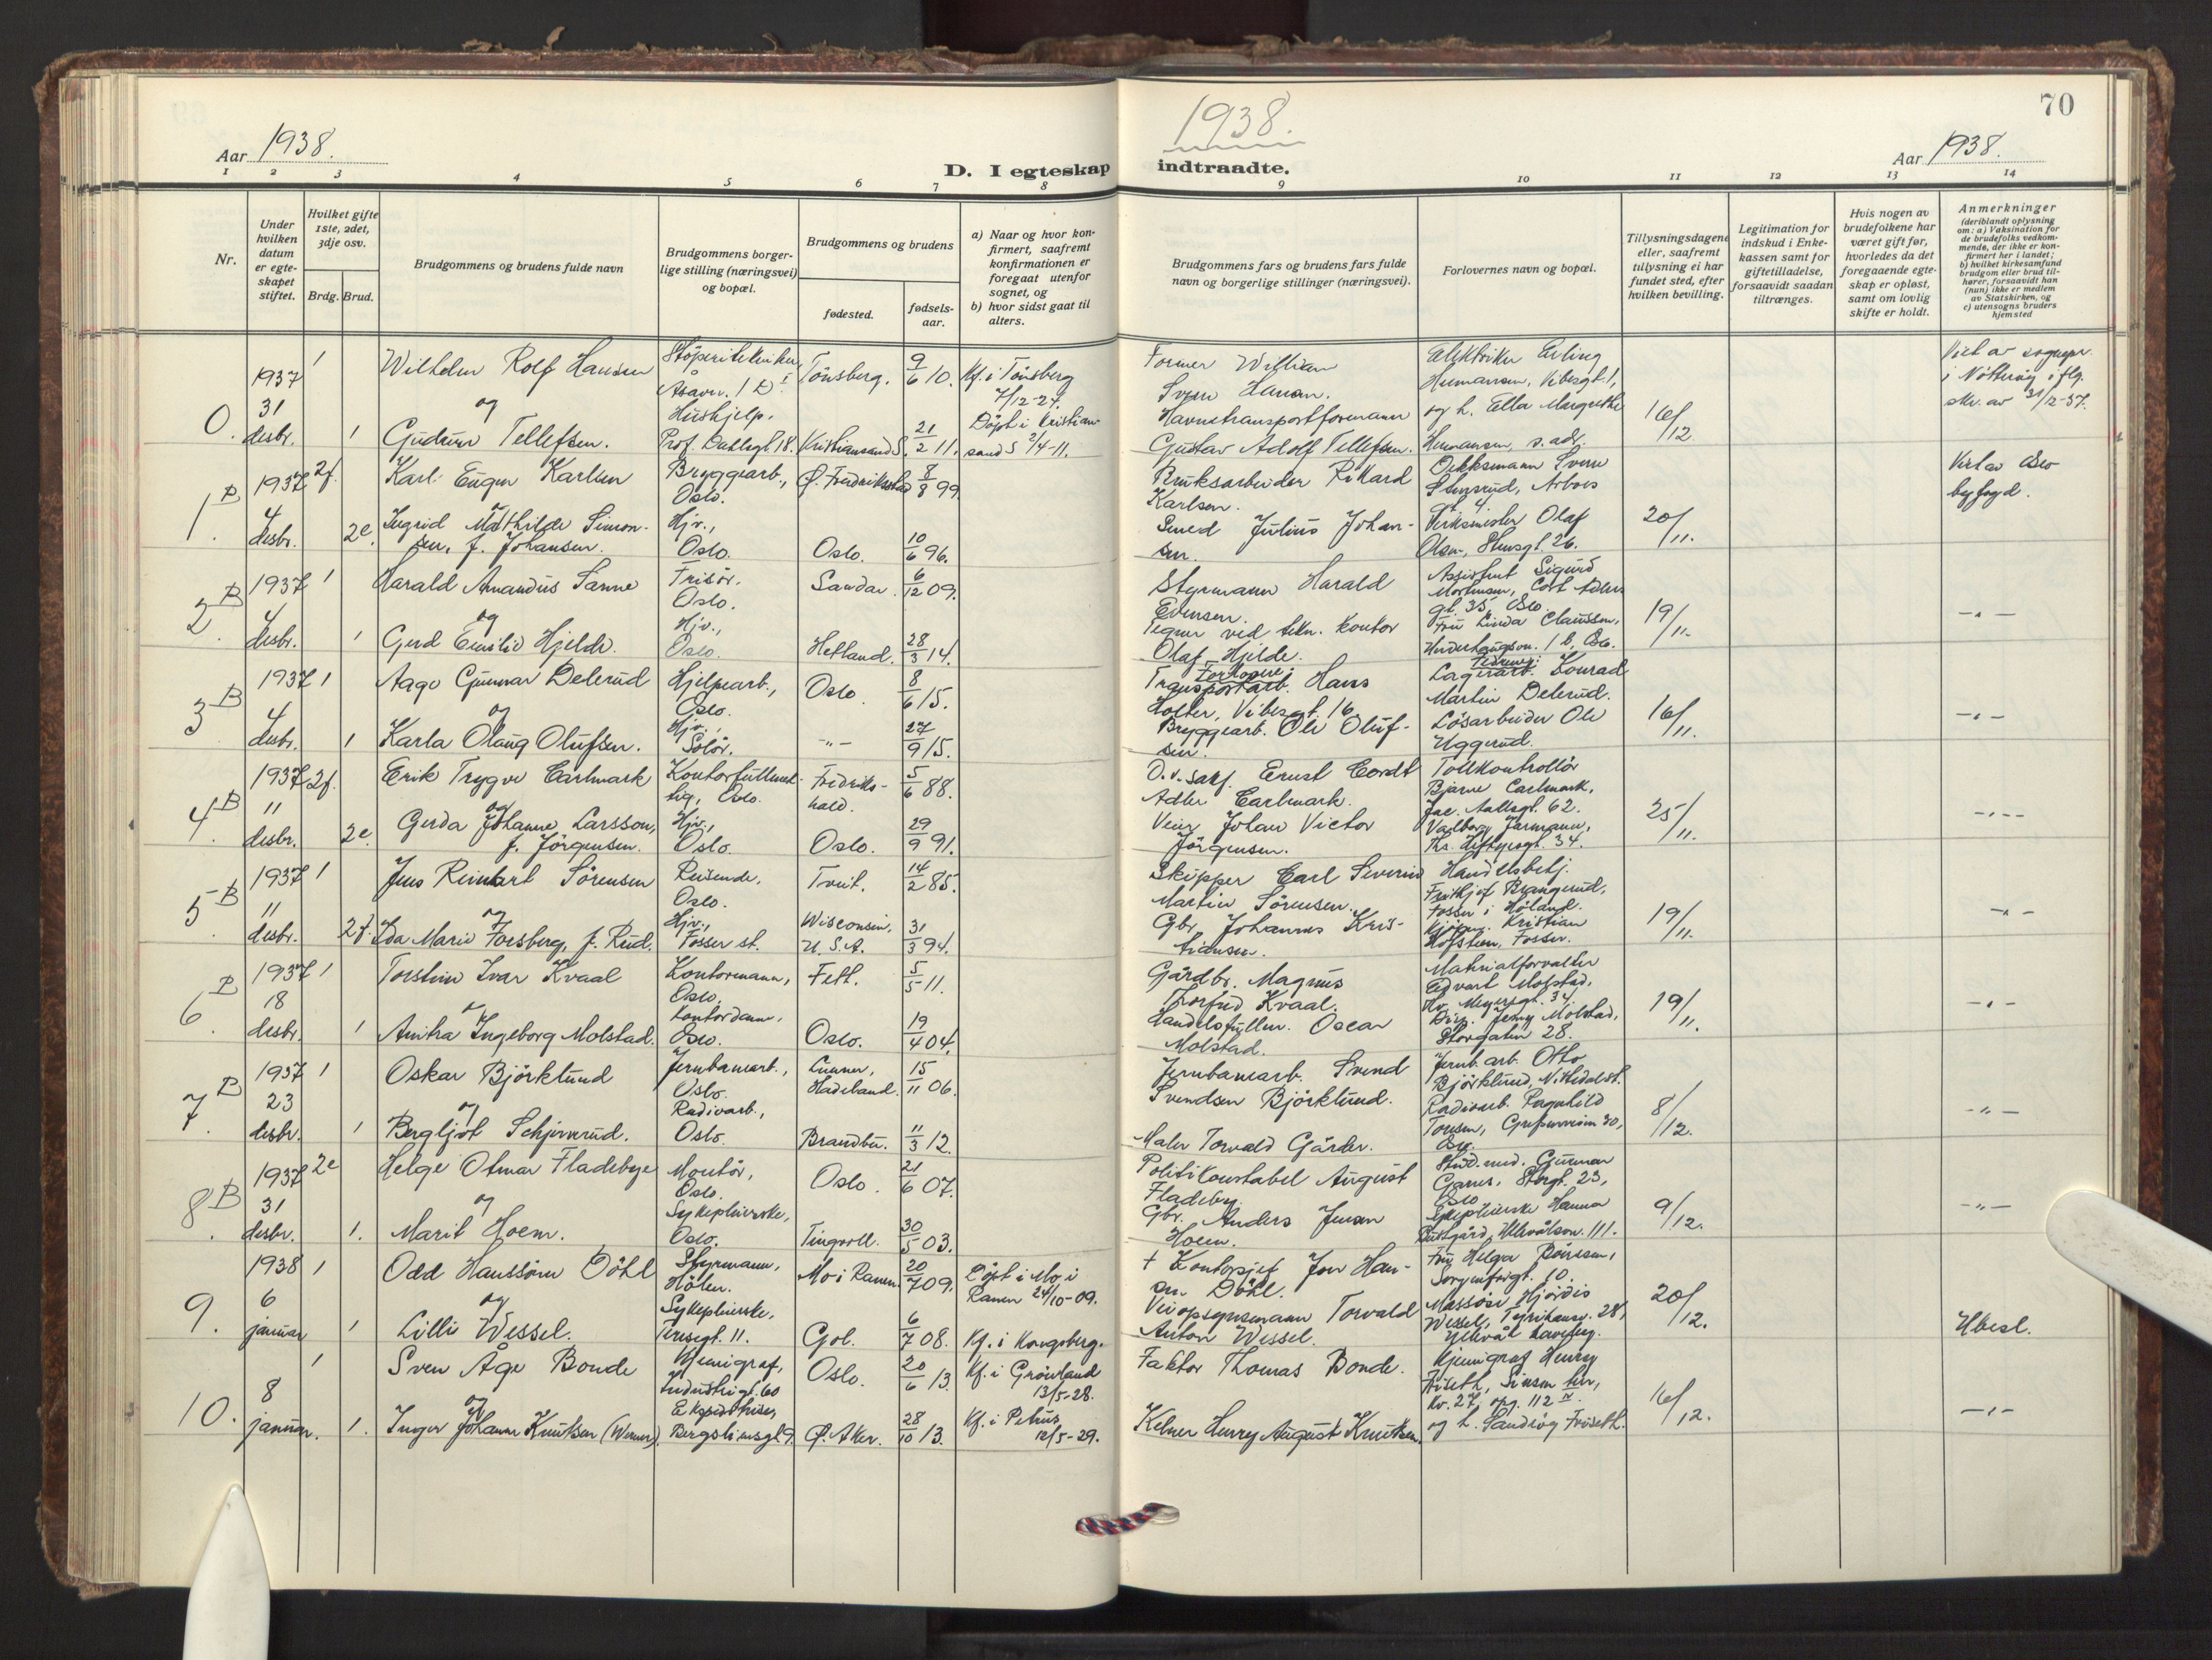 70
1938.
Aar 1938.
Aar 1938.
D. I egteskap indtraadte.
1 2 3 4 5 6 7 8 9 10 11 12 13 14
Nr.
Under hvilken datum er egte-skapet stiftet.
Hvilket gifte 1ste, 2det, 3dje osv.
Brdg. Brud.
Brudgommens og brudens fulde navn
Brudgommens borger-lige stilling (næringsvei) og bopæl.
Brudgommens og brudens
fødested.
fødsels-aar.
a) Naar og hvor kon-firmert, saafremt konfirmationen er foregaat utenfor sognet, og
b) hvor sidst gaat til alters.
Brudgommens fars og brudens fars fulde navn og borgerlige stillinger (næringsvei).
Forlovernes navn og bopæl.
Tillysningsdagene eller, saafremt tillysning ei har fundet sted, efter hvilken bevilling.
Legitimation for indskud i Enke-kassen samt for giftetilladelse, forsaavidt saadan tiltrænges.
Hvis nogen av brudefolkene har været gift før, hvorledes da det foregaaende egte-skap er opløst, samt om lovlig skifte er holdt.
Anmerkninger
(deriblandt oplysning om: a) Vaksination for de brudefolks vedkom-mende, der ikke er kon-firmert her i landet;
b) hvilket kirkesamfund brudgom eller brud til-hører, forsaavidt han (hun) ikke er medlem av Statskirken, og
c) utensogns bruders hjemsted
0. 1937 31 desbr. 1 Wilhelm Rolf Hansen Tönsberg. 9/6 10. Kf. i Tönsberg 7/12-24.
og
1 Gudrun Tellefsen. Hushjelp. Prof. Dahlsgt. 18. Kristiansand S. 21/2 11. Döpt i Kristian-sand S 2/4-11.
Former William Svern Hansen.
Havnetransportformann Gustav Adolf Tellefsen.
Elektriker Erling Hermansen, Vibesgt. 1, og h. Ella Margrethe Hermansen, s. adr.
16/12.
Viet av sognepr. i Nötteröy iflg. skr. av 31/12-37.
1B. 1937 4 desbr. 2f. Karl Eugen Karlsen Bryggearb., Oslo. Ø. Fredrikstad 8/8 99.
2e. Ingrid Mathilde Simon-sen, f. Johansen. Hjv., Oslo. Oslo. 10/6 96.
Bruksarbeider Rikard Karlsen.
Smed Julius Johan-sen.
Sverre Stensrud, Arbos gt. 4.
Verksmester Olaf Olsen, Stensgt. 26.
20/11.
Viet av Oslo byfogd.
2B. 1937 4 desbr. 1 Harald Amandus Sanne Frisör. Oslo. Sandar. 6/12 09.
og
1 Gerd Emilie Hjelde. Hjv., Oslo. Hetland. 28/3 14.
Styrmann Harald Edensen.
Tegner ved tekn. kontor Olaf Hjelde.
Assistent Sigurd Mortensen, Cort Adlers gt. 35, Oslo.
Fru Linda Claussen, Underhaugsvn. 1 b, Oslo.
19/11.
-"-
3B. 1937 4 desbr. 1 Aage Gunnar Delerud Hjelpearb., Oslo. Oslo 8/6 15.
og
1 Karla Olaug Olufsen. Hjv., Solör. -"- 27/9 15.
Forlover: Transportarb. Hans Holter, Vibesgt. 16.
Bryggearb. Ole Oluf-sen.
Lagerarb. Konrad Martin Delerud.
Lösarbeider Ole Uggerud.
16/11.
-"-
4B. 1937 11 desbr. 2f. Erik Trygve Carlmark Kontorfullmek-tig, Oslo. Fredriks-hald. 5/6 88.
og
2e. Gerda Johanne Larsson, f. Jörgensen. Hjv., Oslo. Oslo. 29/9 91.
O.r.sakf. Ernst Cordt Adler Carlmark.
Veier Johan Victor Jörgensen.
Tollkontrollör Bjarne Carlmark, Jac. Aallsgt. 62.
Valborg Jarmann, Ths. Heftyesgt. 34.
25/11.
-"-
5B. 1937 11 desbr. 1 Jens Reinhart Sörensen Reisende, Oslo. Tveit. 14/2 85.
og
2f. Ida Marie Forsberg, f. Rud. Hjv., Fosser st. Wisconsin, U.S.A. 31/3 94.
Skipper Carl Severin Martin Sörensen.
Gbr. Johannes Kris-tiansen.
Handelsbetj. Frithjof Brangerud, Fosser i Höland.
Kristian Hofsteen, Fosser.
19/11.
-"-
6B. 1937 18 desbr. 1 Torstein Ivar Kvaal Kontormann, Oslo. Feth. 5/5 11.
og
1 Anitra Ingeborg Molstad. Kontordame, Oslo. Oslo. 19/4 04.
Gårdbr. Magnus Torfind Kvaal.
Handelsfullm. Oscar Molstad.
Materialforvalter Edvart Molstad, Meyersgt. 34.
Jenny Molstad, Storgaten 28.
19/11.
-"-
7B. 1937 23 desbr. 1 Oskar Björklund Jernbanearb., Oslo. Lunner, Hadeland. 15/11 06.
og
1 Bergljot Schjerverud. Radioarb., Oslo. Brandbu. 11/3 12.
Jernbanearb. Svend Svendsen Björklund.
Maler Torvald Gårder.
Jernb.arb. Otto Björklund, Nittedal st.
Radioarb. Ragnhild Tonsen, 30, Oslo.
8/12.
-"-
8B. 1937 31 desbr. 2e Helge Otmar Fladebye Montör, Oslo. Oslo. 21/6 07.
og
1. Marit Hoem. Sykepleierske, Oslo. Tingvoll. 30/5 03.
Politikonstabel August Fladeby.
Gbr. Anders Jensen Hoem.
Stud. med. Gunnar Garnes, Storgt. 23, Oslo.
Sykepleierske Hanna Ullevålsvn. 111.
9/12.
-"-
9. 1938 6 januar 1 Odd Hanssönn Döhl Styrmann, Hölen. Mo i Ranen. 20/7 09. Döpt i Mo i Ranen 24/10-09.
og
1 Lilli Wessel. Sykepleierske, Teresegt. 11. Gol. 6/7 08. Kf. i Kongsberg.
† Kontorsjef Jon Han-sen Döhl.
Veiopsynsmann Torvald Anton Wessel.
Fru Helga Börresen, Sorgenfrigt. 10.
Massöse Hjördis Wessel, Tyrihansv. 28, Ullevål haveby.
20/12.
Ubesl.
10. 8 januar. 1 Sven Åge Bonde Kjemigraf, Industrigt. 60 Oslo. 20/6 13. Kf. i Grönland 13/5-28.
og
1. Inger Johanne Knutsen (Werner). Ekspeditrise, Bergsliensgt. 9. Ø. Aker. 28/10 13. Kf. i Petrus 12/5-29.
Faktor Thomas Bonde.
Kelner Henry August Knutsen.
Kjemigraf Henry Friseth, Sinsen ter., kv. 27, opg. 112 IV
og h. Sandrög Friseth.
16/12.
-"-